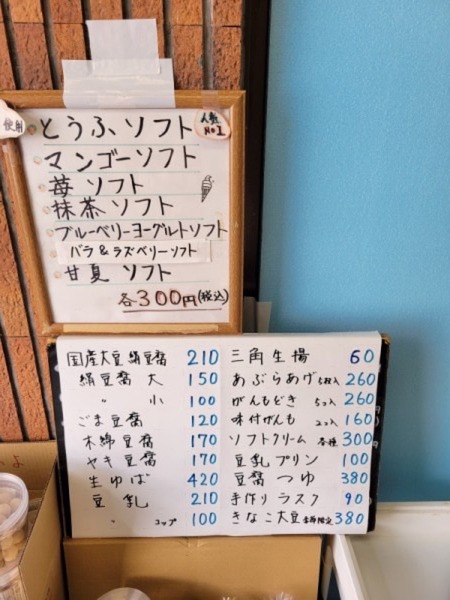 使用
とうふソフト
人気
No.1
マンゴーソフト
苺ソフト
抹茶ソフト
ブルーベリーヨーグルトソフト
バラ&ラズベリーソフト
甘夏ソフト
各300円(税込)
国産大豆絹豆腐 210
絹豆腐 大 150
〃 小 100
ごま豆腐 120
木綿豆腐 170
ヤキ豆腐 170
生ゆば 420
豆乳 210
〃 コップ 100
三角生揚 60
あぶらあげ 5枚入 260
がんもどき 5コ入 260
味付がんも 2コ入 160
ソフトクリーム 各種 300
豆乳プリン 100
豆腐つゆ 380
手作りラスク 90
きなこ大豆 季節限定 380